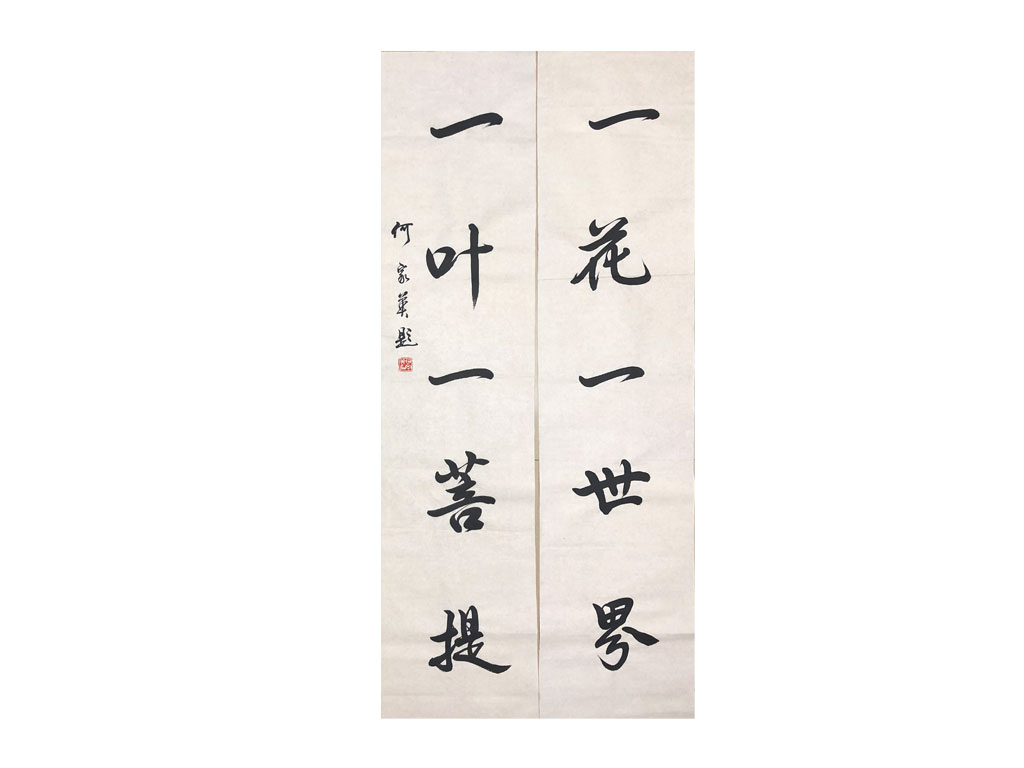 一花一世界
一叶一菩提
何家英题